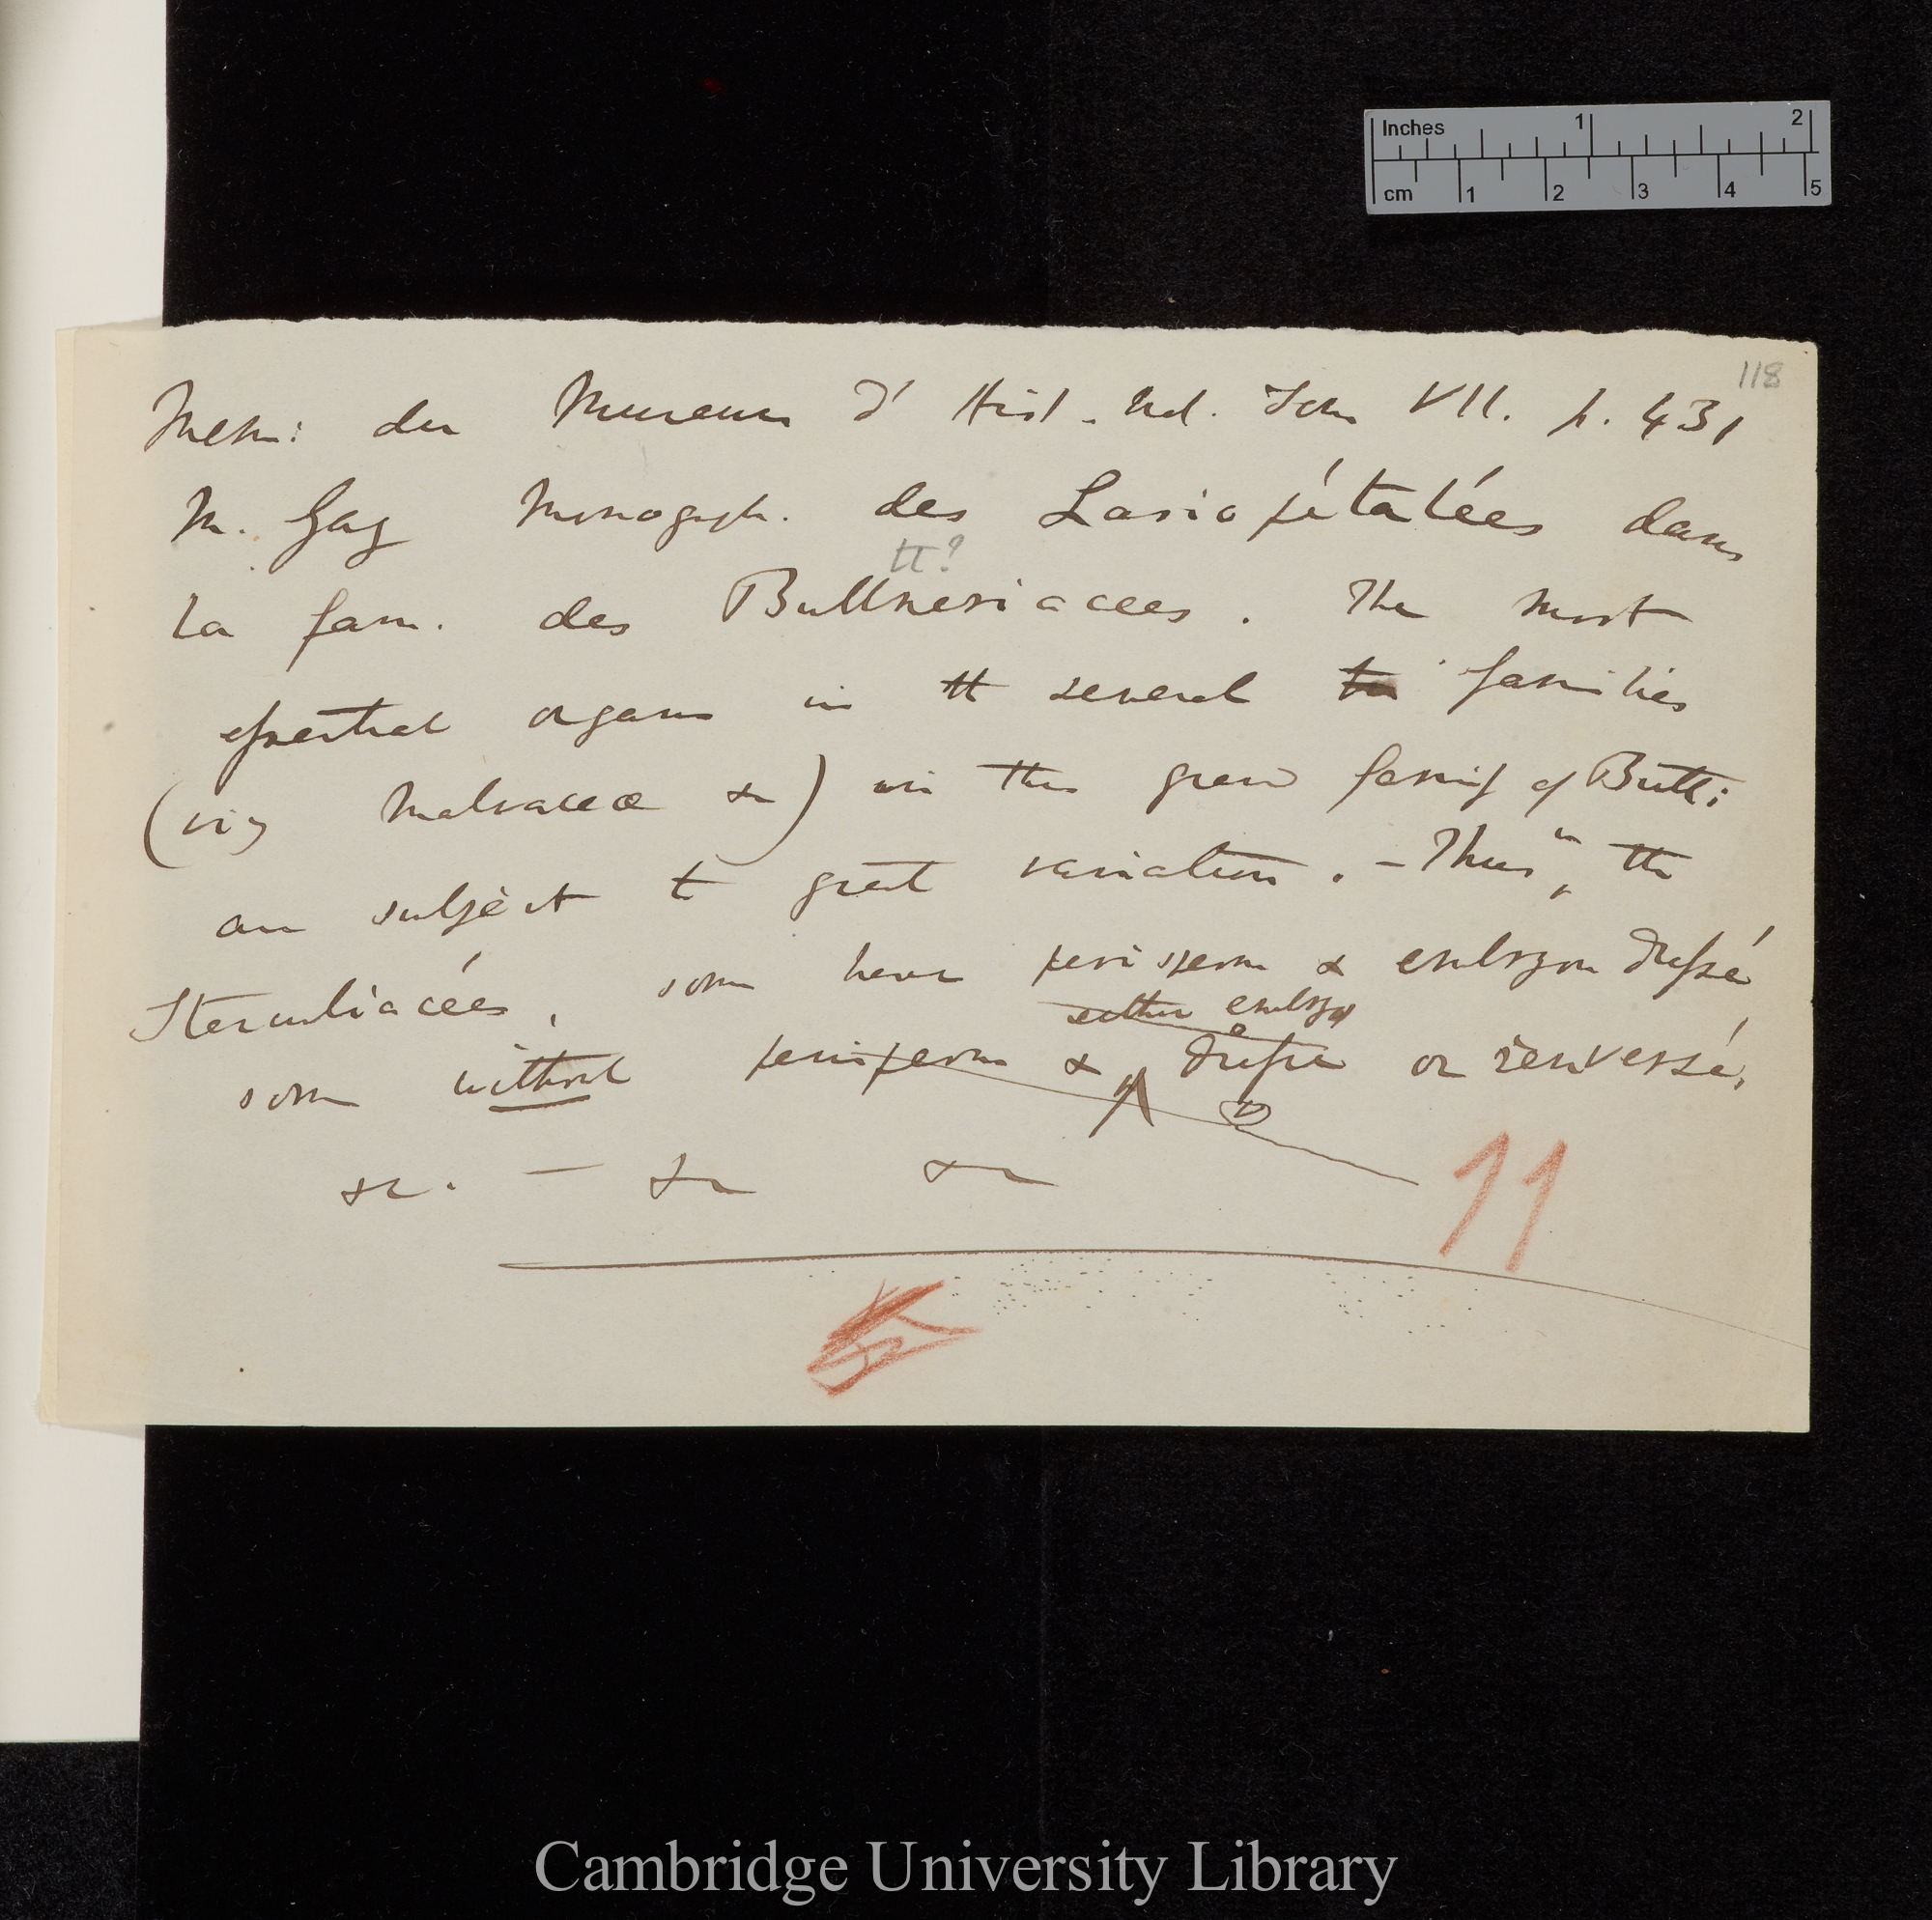 Inches 1 2
cm 1 2 3 4 5
118
Mem: du Museum d' Hist. Nat. Tom VII. p. 431
M. Gay Monogrph. des Lasiopétalées dans
tt?
la fam. des Bullneriacees. The most
essential organs in tt several families
(viz Malvaceæ &c) in this grand family of Butt:
are subject to great variation. — Thus in the
Sterculiacées, some have perisperm & embryon dressé
either embryo
some without perisperm & dressé or renversé,
&c. — &c &c
11
Cambridge University Library